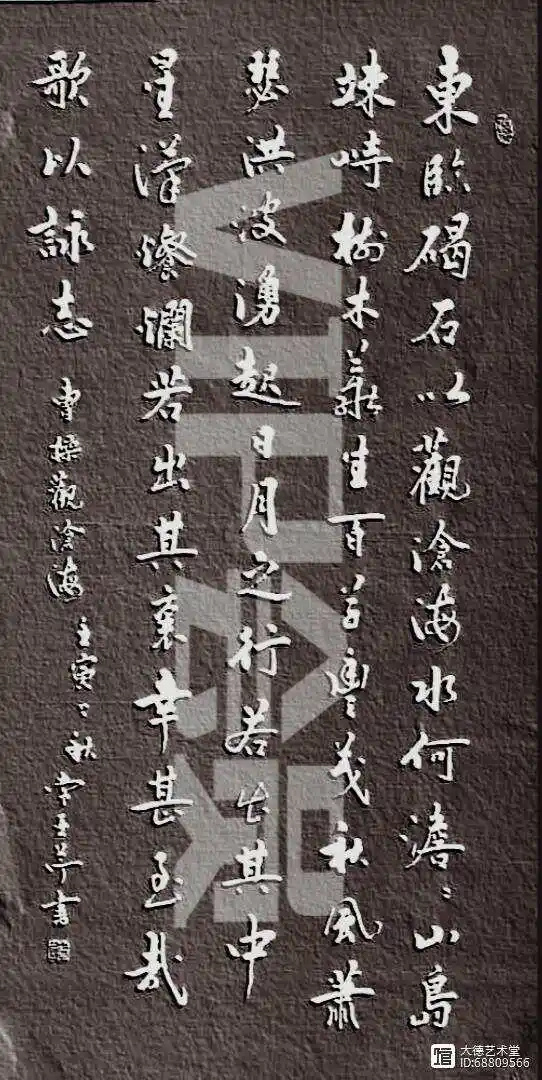 東臨碣石以觀滄海水何澹〻山島
竦峙樹木叢生百草豐茂秋風蕭
瑟洪波湧起日月之行若出其中
星漢燦爛若出其裏幸甚至哉
歌以詠志
曹操觀滄海
壬寅〻秋常玉書
大德艺术堂
ID:68809566